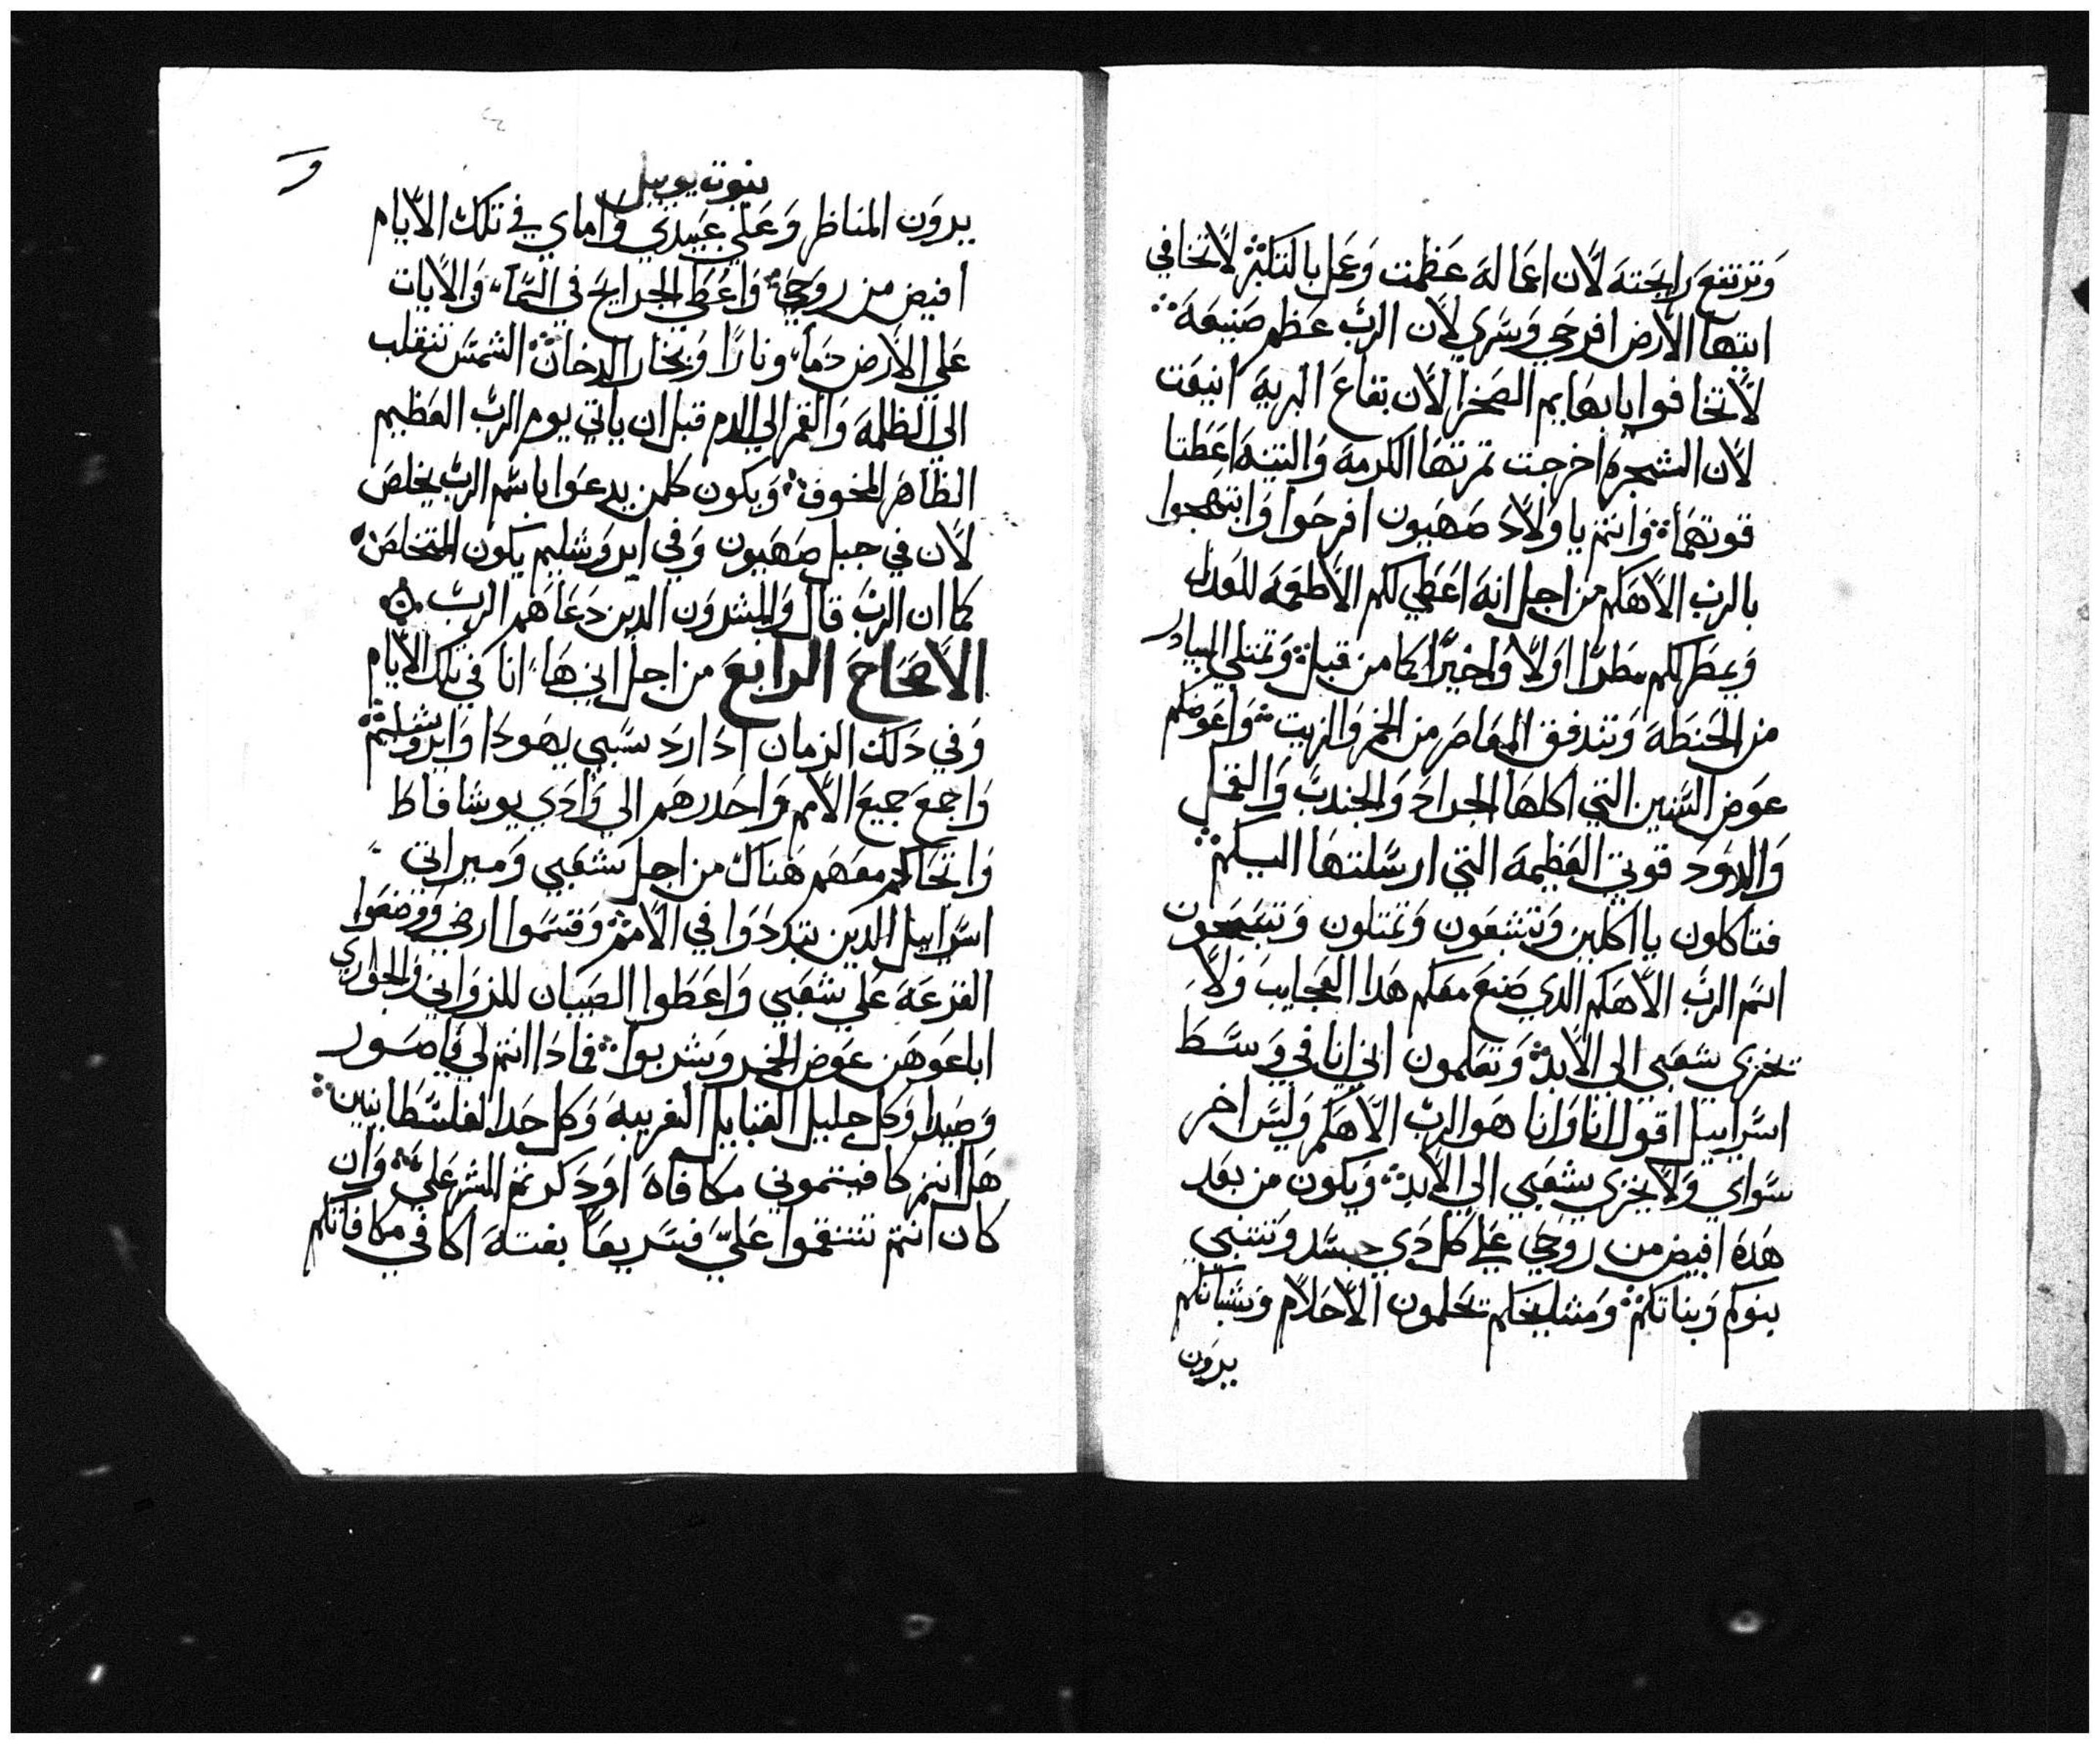 وترتفع رايحته لان اعماله عظمت وعمل بالكثلثه لا تخافي
ايتها الارض افرحي وسري لان الرب عظم صنيعه
لا تخافوا يا بهايم الصخرا لان بقاع البريه انبعت
لان الشجره اخرجت ثمرتها الكرمه والتينه اعطتا
قوتهما وانتم يا ولاد صهيون افرحوا وابتهجوا
بالرب الاهكم من اجل انه اعطي لكم الاطعمه للعدل
ويمطر لكم مطرا اولا واخيرا كما من قبل وتمتلي البيادر
من الحنطه وتتدفق المعاصر من الخمر والزيت واعوضكم
عوض السنين التي اكلها الجراد والجندب والقمل
والدود قوتي العظيمه التي ارسلتها اليكم
فتاكلون يا اكلين وتشبعون وتمتلون وتسبحون
اسم الرب الاهكم الدي صنع معكم هدا العجايب ولا
تخزي شعبي الي الابد وتعلمون اني انا في وسط
اسراييل اقول انا وانا هو الرب الاهكم وليس اخر
سواي ولا يخزي شعبي الي الابد ويكون من بعد
هده افيض من روحي علي كل دي جسد وتتنبي
بنوكم وبناتكم ومشايخكم تحلمون الاحلام وشبانكم
يرون
نبوت يوييل
و
يرون المناظر وعلي عبيدي واماي في تلك الايام
افيض من روحي واعطي الجرايح في السماء والايات
علي الارض دما ونارا وبخار الدخان الشمس تنقلب
الي الظلمه والقمر الي الدم قبل ان ياتي يوم الرب العظيم
الظاهر المخوف ويكون كلمن يدعوا باسم الرب يخلص
لان في جبل صهيون وفي ايروشليم يكون المتخلص
كما ان الرب قال والمبشرون الدين دعاهم الرب
الاصحاح الرابع من اجل اني هاء انا في تلك الايام
وفي دلك الزمان ادا ارد سبي يهودا وايروشليم
واجمع جميع الامم واحدرهم الي وادي يوشافاط
واتحاكم معهم هناك من اجل شعبي وميراتي
اسراييل الدين تبددوا في الامم وقسموا ارضي ووضعوا
القرعه علي شعبي واعطوا الصبيان للزواني والجواري
اباعوهن عوض الخمر وشربوا فمادا انتم لي يا صور
وصيدا وكل جليل القبايل الغريبه وكل حدا لفلسطانيين
هل انتم كافيتموني مكافاه او دكرتم الشر علي وان
كان انتم تنتقموا علي فسريعا بغته اكافي مكافاتكم